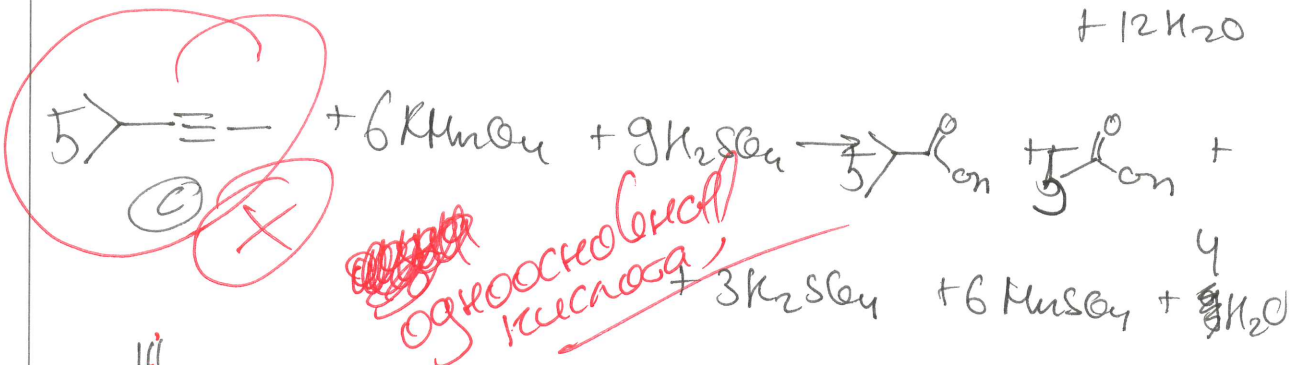 + 12 H2O
5 + 6 KMnO4 + 9H2SO4 → 5 O OH + 5 O OH +
C
X
одноосновная
кислота,
+ 3K2SO4 + 6 MnSO4 + 4 H2O